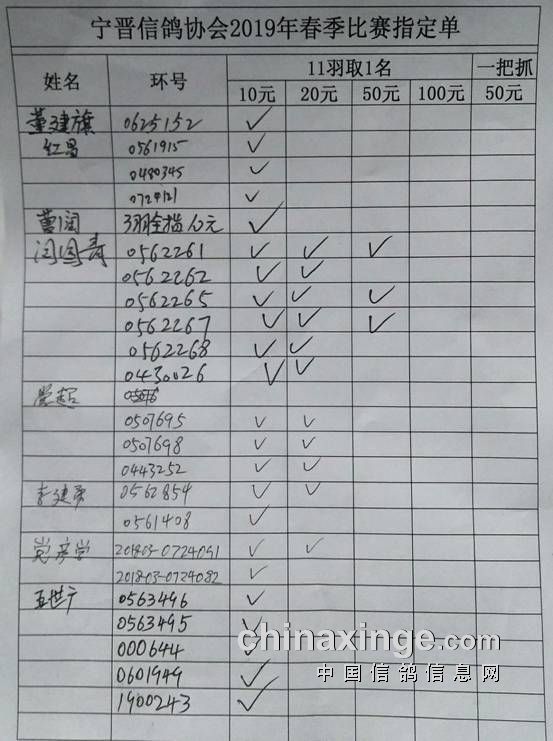 宁晋信鸽协会2019年春季比赛指定单
姓名 环号 11羽取1名 一把抓
10元 20元 50元 100元 50元
董建旗 0625152 ✓
红昌 0561915 ✓
0480345 ✓
✓
曹润 3羽全指10元 ✓
闫国寿 0562261 ✓ ✓ ✓
0562262 ✓ ✓
0562265 ✓ ✓ ✓
0562267 ✓ ✓ ✓
0562268 ✓ ✓
0430026 ✓ ✓
0507695 ✓ ✓
0507698 ✓ ✓
0443252 ✓ ✓
李建 0562854 ✓ ✓
0561408 ✓
党彦学 2018-03-0724091 ✓ ✓
2018-03-0724082 ✓
王世广 0563496 ✓
0563495 ✓
000644 ✓
0601949 ✓
1900243 ✓
chinaxinge.com
中国信鸽信息网